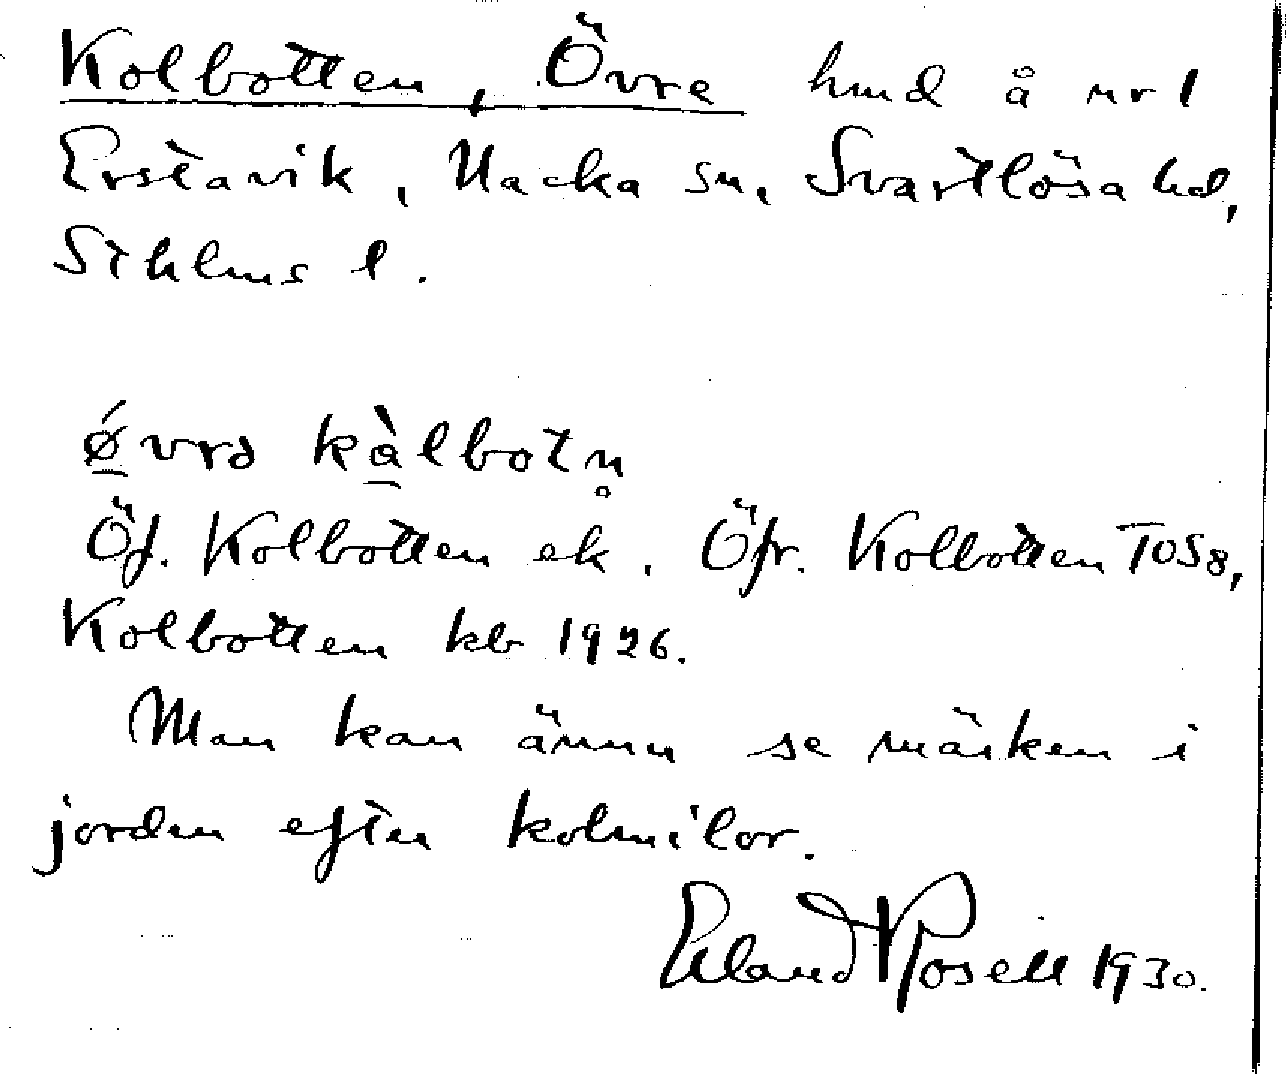 Kolbotten, Övre hmd å nr 1
Erstavik, Nacka sn, Svartlösa hd,
Sthlms l.
ǿ̱vrə kὰ̱lbotn̥
Öf. Kolbotten ek. Öfr. Kolbotten TOS8,
Kolbotten kb 1926.
Man kan ännu se märken i
jorden efter kolmilor.
Erland Rosell 1930.